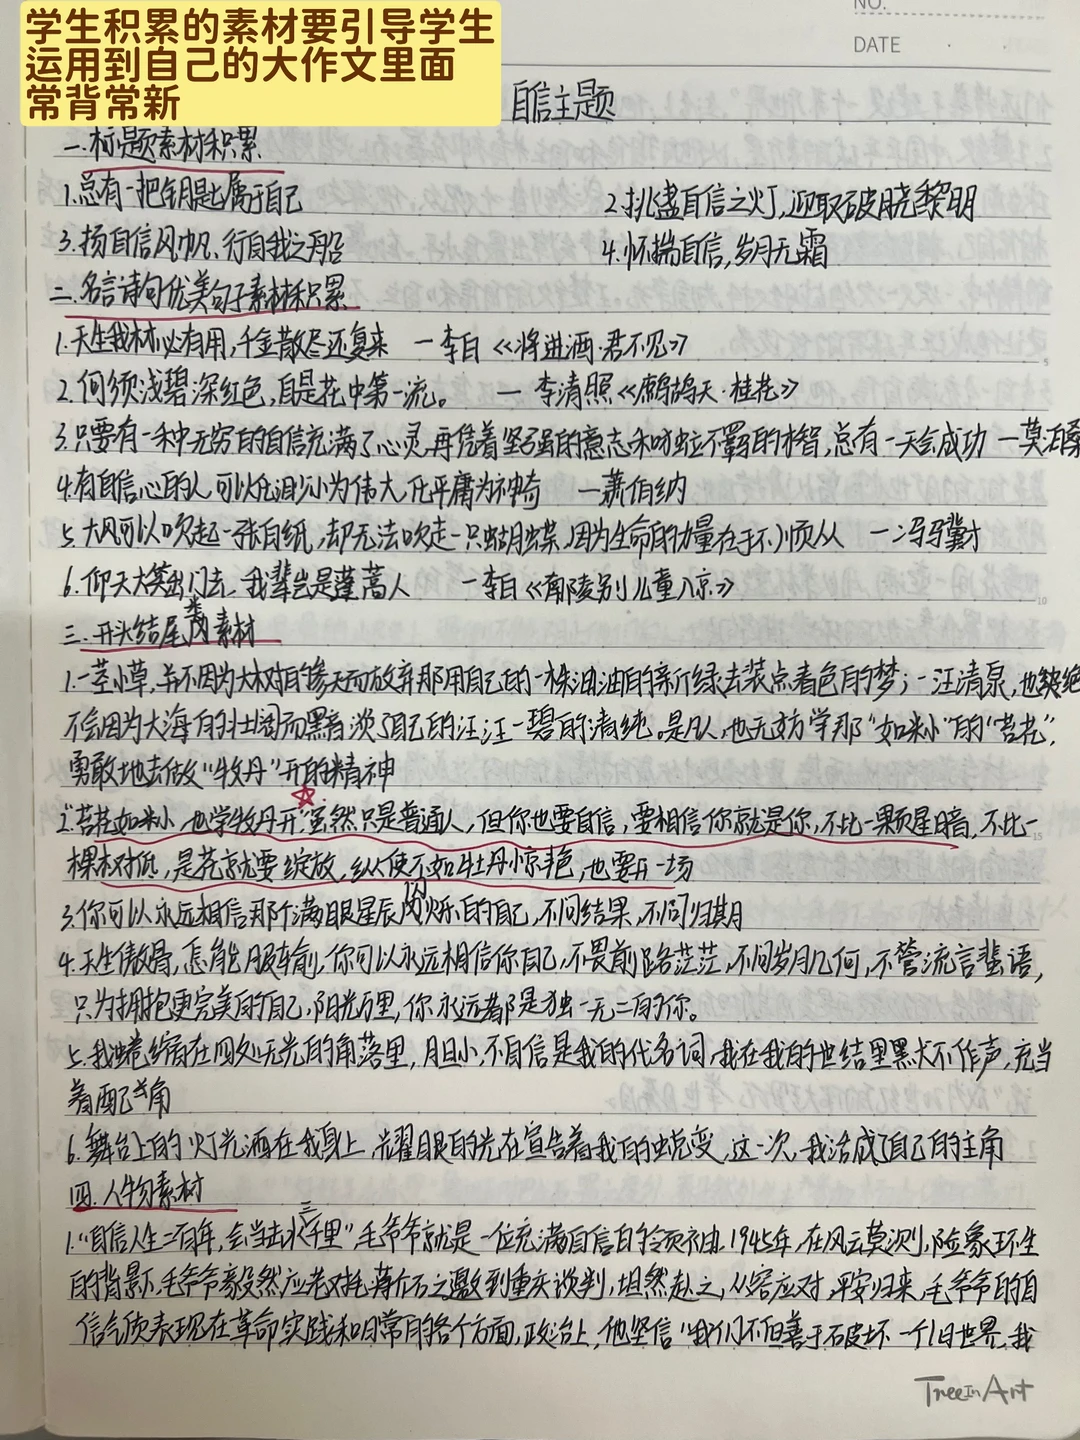 学生积累的素材要引导学生
运用到自己的大作文里面
常背常新
NO.
DATE
自信主题
一.标题素材积累
1.总有一把钥匙属于自己 2.挑盏自信之灯,迎取破晓黎明
3.扬自信风帆、行自我之舟 4.怀揣自信,岁月无霜
二.名言诗句优美句子素材积累
1.天生我材必有用,千金散尽还复来 —李白《将进酒·君不见》
2.何须浅碧深红色,自是花中第一流。 —李清照《鹧鸪天·桂花》
3.只要有一种无穷的自信充满了心灵,再凭着坚强的意志和独立不羁的才智,总有一天会成功 —莫泊桑
4.有自信心的人,可以化渺小为伟大,化平庸为神奇 —萧伯纳
5.大风可以吹起一张白纸,却无法吹走一只蝴蝶,因为生命的力量在于不顺从 —冯骥才
6.仰天大笑出门去,我辈岂是蓬蒿人 —李白《南陵别儿童入京》
三.开头结尾类素材
1.一茎小草,并不因为大树的参天而放弃那用自己的一株油油的新绿去装点着色的梦;一汪清泉,也绝
不会因为大海的壮阔而黯淡了自己的汪汪一碧的清纯。是凡人,也无妨学那“如米小”的“苔花”,
勇敢地去做“牡丹”开的精神
2.“苔花如米小,也学牡丹开”虽然只是普通人,但你也要自信,要相信你就是你,不比一颗星暗,不比一
棵树低,是花就要绽放,纵使不如牡丹惊艳,也要开一场
3.你可以永远相信那个满眼星辰闪烁的自己,不问结果,不问归期
4.天生傲骨,怎能服输,你可以永远相信你自己,不畏前路茫茫,不问岁月几何,不管流言蜚语,
只为拥抱更完美的自己,阳光万里,你永远都是独一无二的你。
5.我蜷缩在四处无光的角落里,胆小,不自信是我的代名词,我在我的世结里默不作声,充当
着配角
6.舞台上的灯光洒在我身上,耀眼的光在宣告着我的蜕变,这一次,我活成了自己的主角
四.人物素材
1.“自信人生二百年,会当击水三千里”毛爷爷就是一位充满自信的领袖,1945年,在风云莫测,险象环生
的背景下,毛爷爷毅然应老对手蒋介石之邀到重庆谈判,坦然赴之,从容应对,平安归来,毛爷爷的自
信气质表现在革命实践和日常的各个方面,政治上,他坚信“我们不但善于破坏一个旧世界,我
TreeInArt